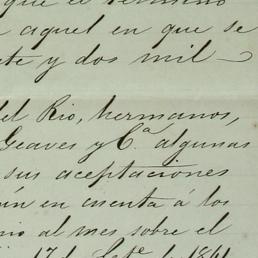 que el término
aquel en que se
te y dos mil
del Rio, hermanos,
Geaves y Cª. algunas
sus aceptaciones
ún en cuenta á los
io al mes sobre el
17 de Sete. de 1861